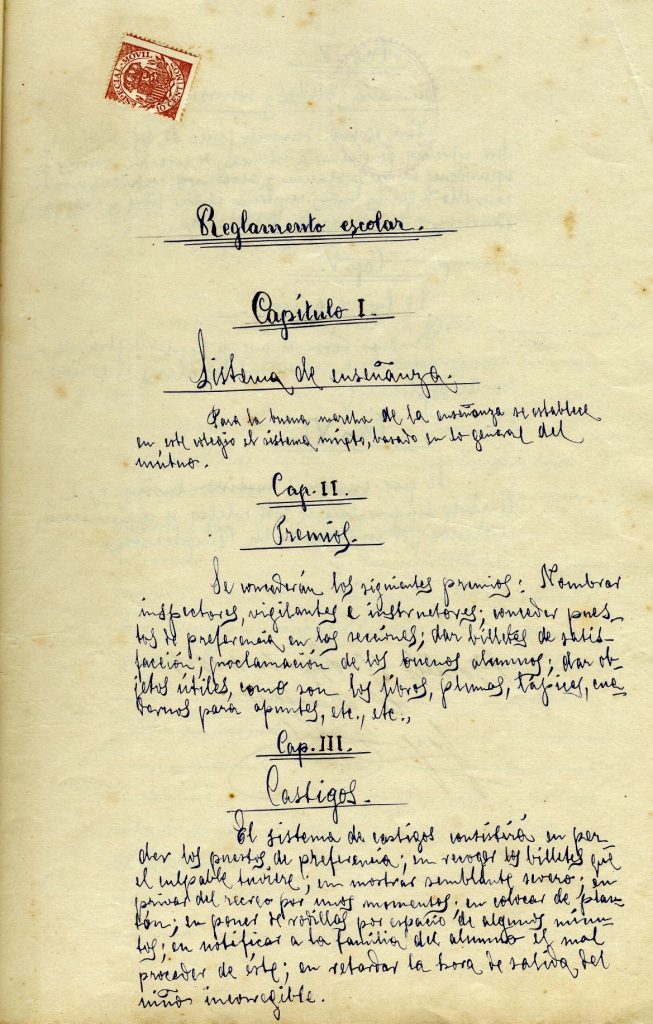 ESPECIAL MOVIL
10 CENTIMOS
Reglamento escolar.
Capítulo I.
Sistema de enseñanza.
Para la buena marcha de la enseñanza se establece
en este colegio el sistema mixto, basado en lo general del
mútuo.
Cap. II.
Premios.
Se concederán los siguientes premios: Nombrar
inspectores, vigilantes e instructores; conceder pues-
tos de preferencia en las secciones; dar billetes de satis-
facción; proclamación de los buenos alumnos; dar ob-
jetos útiles, como son los libros, plumas, lápices, cua-
dernos para apuntes, etc., etc.,
Cap. III.
Castigos.
El sistema de castigos consistirá en per-
der los puestos de preferencia; en recoger los billetes que
el culpable tuviere; en mostrar semblante severo; en
privar del recreo por unos momentos; en colocar de plan-
tón; en poner de rodillas por espacio de algunos minu-
tos; en notificar a la familia del alumno el mal
proceder de éste; en retardar la hora de salida del
niño incorregible.